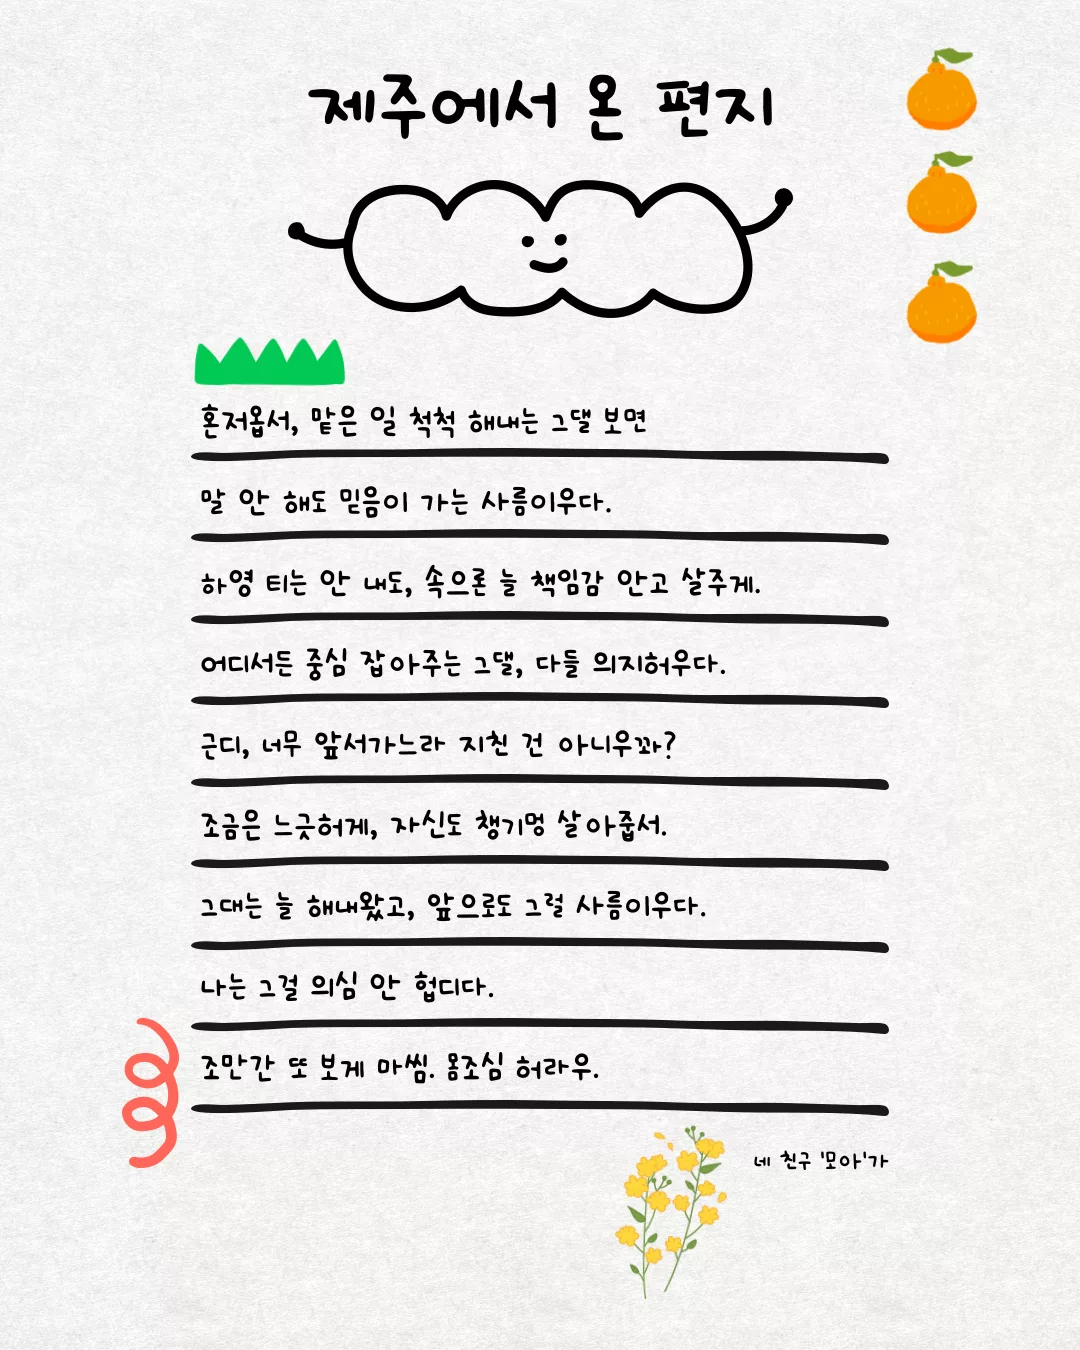 제주에서 온 편지
혼저옵서, 맡은 일 척척 해내는 그댈 보면
말 안 해도 믿음이 가는 사름이우다.
하영 티는 안 내도, 속으론 늘 책임감 안고 살주게.
어디서든 중심 잡아주는 그댈, 다들 의지허우다.
근디, 너무 앞서가느라 지친 건 아니우꽈?
조금은 느긋허게, 자신도 챙기멍 살아줍서.
그대는 늘 해내왔고, 앞으로도 그럴 사름이우다.
나는 그걸 의심 안 헙디다.
조만간 또 보게 마씸. 몸조심 허라우.
네 친구 '모아'가